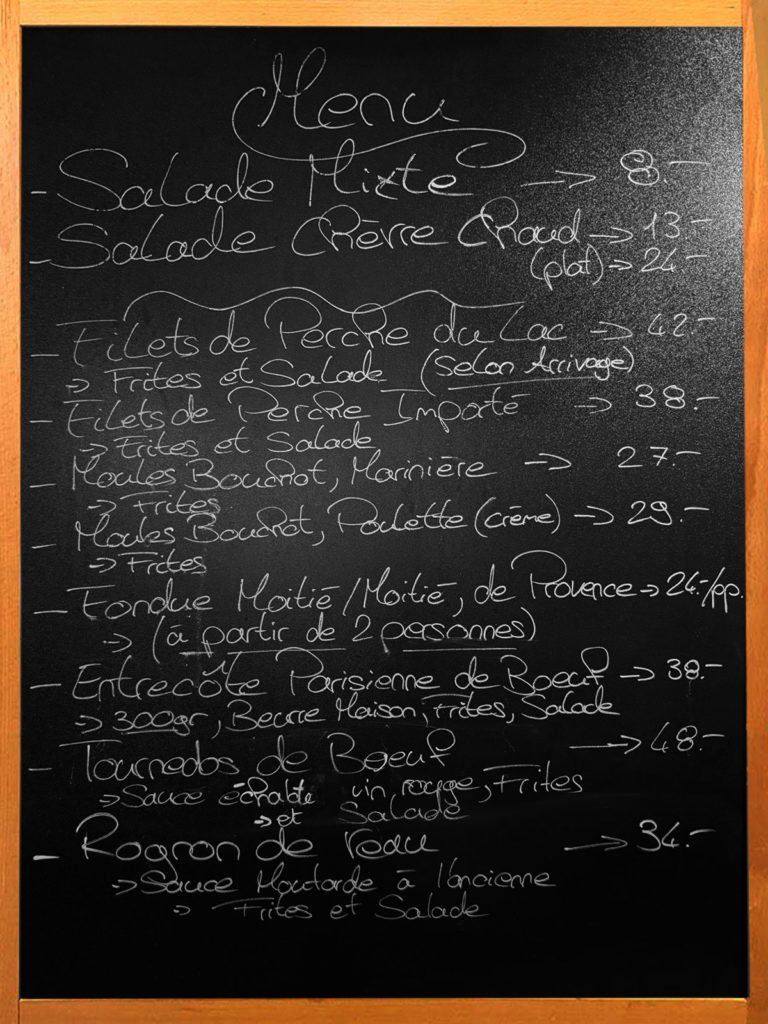 Menu
- Salade Mixte -> 8.-
- Salade Chèvre Chaud -> 13.-
(plat) -> 24.-
- Filets de Perche du Lac -> 42.-
-> Frites et Salade (Selon Arrivage)
- Filets de Perche Importé -> 38.-
-> Frites et Salade
- Moules Bouchot, Marinière -> 27.-
-> Frites
- Moules Bouchot, Poulette (crème) -> 29.-
-> Frites
- Fondue Moitié/Moitié, de Provence -> 24.-/pp.
-> (à partir de 2 personnes)
- Entrecôte Parisienne de Boeuf -> 38.-
-> 300gr, Beurre Maison, Frites, Salade
- Tournedos de Boeuf -> 48.-
-> Sauce échalote vin rouge, Frites
-> et Salade
- Rognon de Veau -> 34.-
-> Sauce Moutarde à l'ancienne
-> Frites et Salade